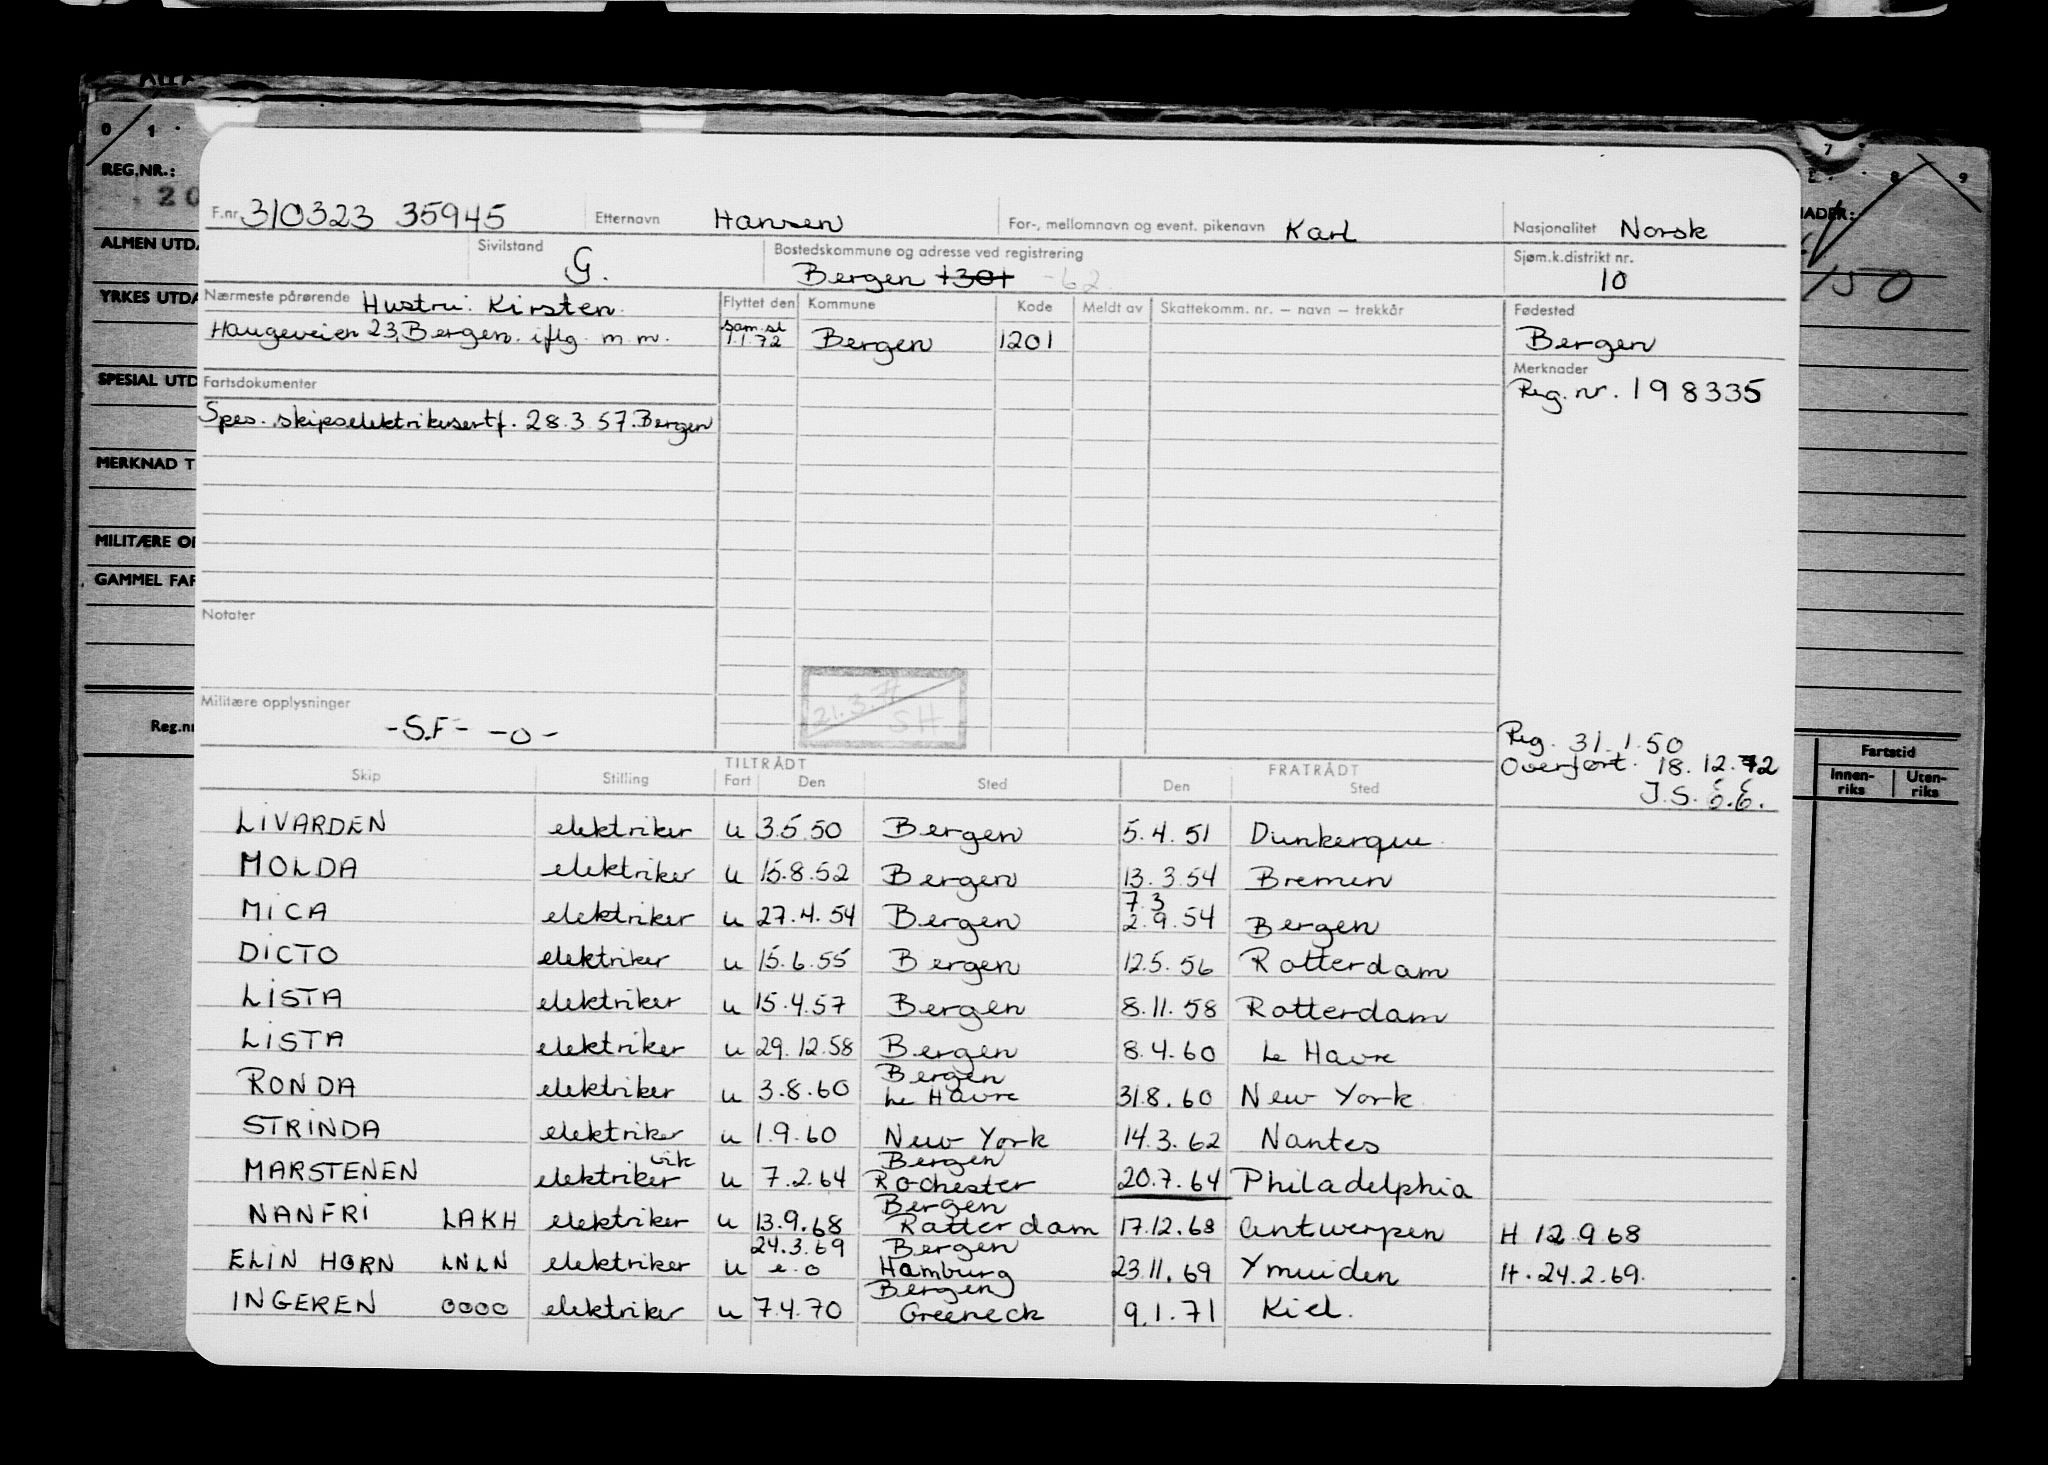 0 1 7 8 9
REG.NR.:
20
ALMEN UTDA
YRKES UTDA
150
SPESIAL UTD
MERKNAD T
MILITÆRE O
GAMMEL FAR
Reg.nr
Fartstid
Innen-riks Uten-riks
F.nr. 310323 35945 Etternavn Hansen For-, mellomnavn og event. pikenavn Karl Nasjonalitet Norsk
Sivilstand G. Bostedskommune og adresse ved registrering Bergen 1301 -62 Sjøm.k.distrikt nr. 10
Nærmeste pårørende Hustru: Kirsten. Flyttet den Kommune Kode Meldt av Skattekomm. nr. – navn – trekkår Fødested
Haugeveien 23, Bergen. iflg. m.m. sam.sl 1.1.72 Bergen 1201 Bergen
Fartsdokumenter Merknader
Reg. nr. 198335
Spes. skipselektrikersertf. 28.3.57. Bergen
Notater
21.3.77 SH
Militære opplysninger
-S.F- -o-
Reg. 31.1.50
Overført. 18.12.72
J.S. ó.ó.
TILTRÅDT FRATRÅDT
Skip Stilling Fart Den Sted Den Sted
LIVARDEN elektriker u 3.5.50 Bergen 5.4.51 Dunkerque
MOLDA elektriker u 15.8.52 Bergen 13.3.54 Bremen
7.3
MICA elektriker u 27.4.54 Bergen 2.9.54 Bergen
DICTO elektriker u 15.6.55 Bergen 12.5.56 Rotterdam
LISTA elektriker u 15.4.57 Bergen 8.11.58 Rotterdam
LISTA elektriker u 29.12.58 Bergen 8.4.60 Le Havre
Bergen
RONDA elektriker u 3.8.60 Le Havre 31.8.60 New York
STRINDA elektriker u 1.9.60 New York 14.3.62 Nantes
vik Bergen
MARSTENEN elektriker u 7.2.64 Rochester 20.7.64 Philadelphia
Bergen
NANFRI LAKH elektriker u 13.9.68 Rotterdam 17.12.68 Antwerpen H 12.9.68
24.3.69 Bergen
ELIN HORN LNLN elektriker u e.o Hamburg 23.11.69 Ymuiden H. 24.2.69.
Bergen
INGEREN OOOO elektriker u 7.4.70 Greeneck 9.1.71 Kiel.